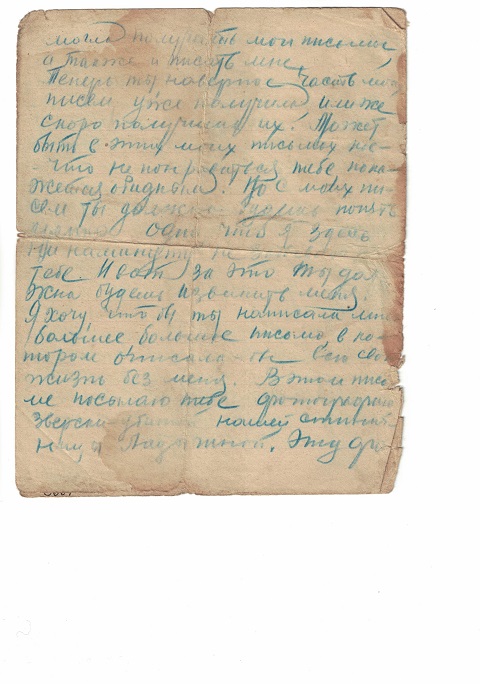 могла получать мои письма
а также и писать мне.
Теперь ты наверное часть мо
писем уже получила или же
скоро получишь их. Может
быть в этих моих письмах кое-
что не понравиться тебе пока-
жется обидным. Но с моих пи-
сем ты должна будешь понять
одно что я здесь
ни на минуту не
тебе И вот за это ты дол
жна будешь извинить меня.
Я хочу что бы ты написала мне
большее большое письмо, в ко-
тором описала бы всю сво
жизнь без меня. В этом пись
ме посылаю тебе фотографию
зверски убитой нашей
Эту фо